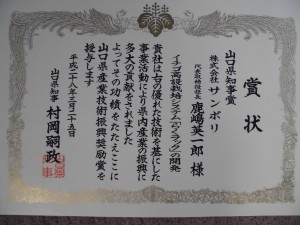 賞状
山口県知事賞
株式会社 サンポリ
代表取締役社長 鹿嶋英一郎 様
イチゴ高設栽培システム「らくラック」の開発
貴社は右の優れた技術を基にした
事業活動により県内産業の振興に
多大の貢献をされました
よってその功績をたたえここに
山口県産業技術振興奨励賞を
授与します
平成二十八年三月二十五日
山口県知事 村岡嗣政